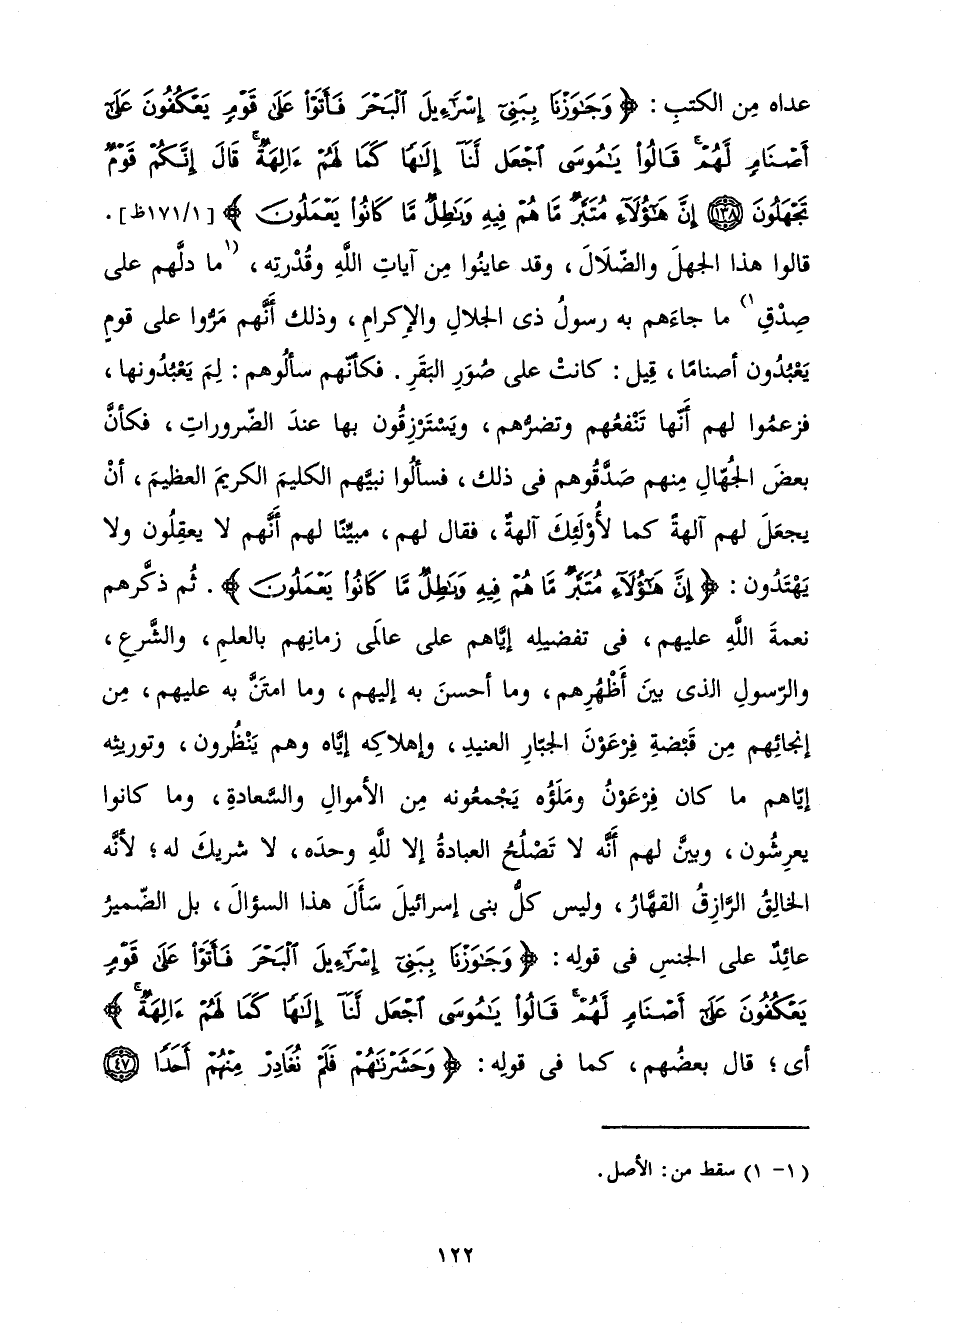 عداه مِن الكتبِ : ﴿ وَجَٰوَزْنَا بِبَنِىٓ إِسْرَٰٓءِيلَ ٱلْبَحْرَ فَأَتَوْا۟ عَلَىٰ قَوْمٍ يَعْكُفُونَ عَلَىٰٓ
أَصْنَامٍ لَّهُمْ ۚ قَالُوا۟ يَٰمُوسَى ٱجْعَل لَّنَآ إِلَٰهًا كَمَا لَهُمْ ءَالِهَةٌ ۚ قَالَ إِنَّكُمْ قَوْمٌ
تَجْهَلُونَ ﴿١٣٨﴾ إِنَّ هَٰٓؤُلَآءِ مُتَبَّرٌ مَّا هُمْ فِيهِ وَبَٰطِلٌ مَّا كَانُوا۟ يَعْمَلُونَ ﴾ [ ١/ ١٧١ظ ] .
قالوا هذا الجهلَ والضّلَالَ ، وقد عاينُوا مِن آياتِ اللَّهِ وقُدْرتِه ، (١ ما دلَّهم على
صِدْقِ ١) ما جاءَهم به رسولُ ذى الجلالِ والإِكرامِ ، وذلك أنَّهم مَرُّوا على قومٍ
يَعْبُدُون أصنامًا ، قِيل : كانتْ على صُوَرِ البَقَرِ . فكأنّهم سألُوهم : لِمَ يَعْبُدُونها ،
فزعمُوا لهم أنّها تَنْفعُهم وتضرُّهم ، ويَسْتَرْزِقُون بها عندَ الضّروراتِ ، فكأنَّ
بعضَ الجُهّالِ مِنهم صَدَّقُوهم فى ذلك ، فسألُوا نبيَّهم الكليمَ الكريمَ العظيمَ ، أنْ
يجعَلَ لهم آلهةً كما لأُوْلَئِكَ آلهةٌ ، فقال لهم ، مبيِّنًا لهم أنَّهم لا يعقِلُون ولا
يَهْتَدُون : ﴿ إِنَّ هَٰٓؤُلَآءِ مُتَبَّرٌ مَّا هُمْ فِيهِ وَبَٰطِلٌ مَّا كَانُوا۟ يَعْمَلُونَ ﴾ . ثُم ذكَّرهم
نعمةَ اللَّهِ عليهم ، فى تفضيلِه إيَّاهم على عالَمى زمانِهم بالعلمِ ، والشَّرعِ ،
والرّسولِ الذى بينَ أَظْهُرِهم ، وما أحسنَ به إليهم ، وما امتنَّ به عليهم ، مِن
إنجائِهم مِن قَبْضةِ فِرْعَوْنَ الجبّارِ العنيدِ ، وإهلاكِه إيَّاه وهم يَنْظُرون ، وتوريثِه
إيّاهم ما كان فِرْعَوْنُ وملَؤُه يَجْمعُونه مِن الأموالِ والسَّعادةِ ، وما كانوا
يعرِشُون ، وبينَّ لهم أنَّه لا تَصْلُحُ العبادةُ إلا للَّهِ وحدَه ، لا شريكَ له ؛ لأنَّه
الخالقُ الرَّازِقُ القهَّارُ ، وليس كلُّ بنى إسرائيلَ سَأَلَ هذا السؤالَ ، بل الضّميرُ
عائِدٌ على الجنسِ فى قولِه : ﴿ وَجَٰوَزْنَا بِبَنِىٓ إِسْرَٰٓءِيلَ ٱلْبَحْرَ فَأَتَوْا۟ عَلَىٰ قَوْمٍ
يَعْكُفُونَ عَلَىٰٓ أَصْنَامٍ لَّهُمْ ۚ قَالُوا۟ يَٰمُوسَى ٱجْعَل لَّنَآ إِلَٰهًا كَمَا لَهُمْ ءَالِهَةٌ ۚ ﴾
أى ؛ قال بعضُهم ، كما فى قولِه : ﴿ وَحَشَرْنَٰهُمْ فَلَمْ نُغَادِرْ مِنْهُمْ أَحَدًا ﴿٤٧﴾
(١ - ١) سقط من : الأصل .
١٢٢